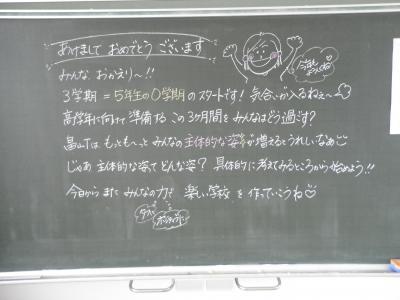 あけまして おめでとう ございます
みんな おかえり〜!!
3学期 = 5年生の0学期のスタートです! 気合いが入るねぇ〜
高学年に向けて 準備する この3ヶ月間を みんなはどう過ごす?
畠山Tは もっとも〜っと みんなの 主体的な姿が増えるとうれしいなぁ
じゃあ 主体的な姿って どんな姿? 具体的に考えてみるところから始めよう!!
今日から また みんなの力で 楽しい学校 を 作っていこうね♡
今年もよろしくね♡